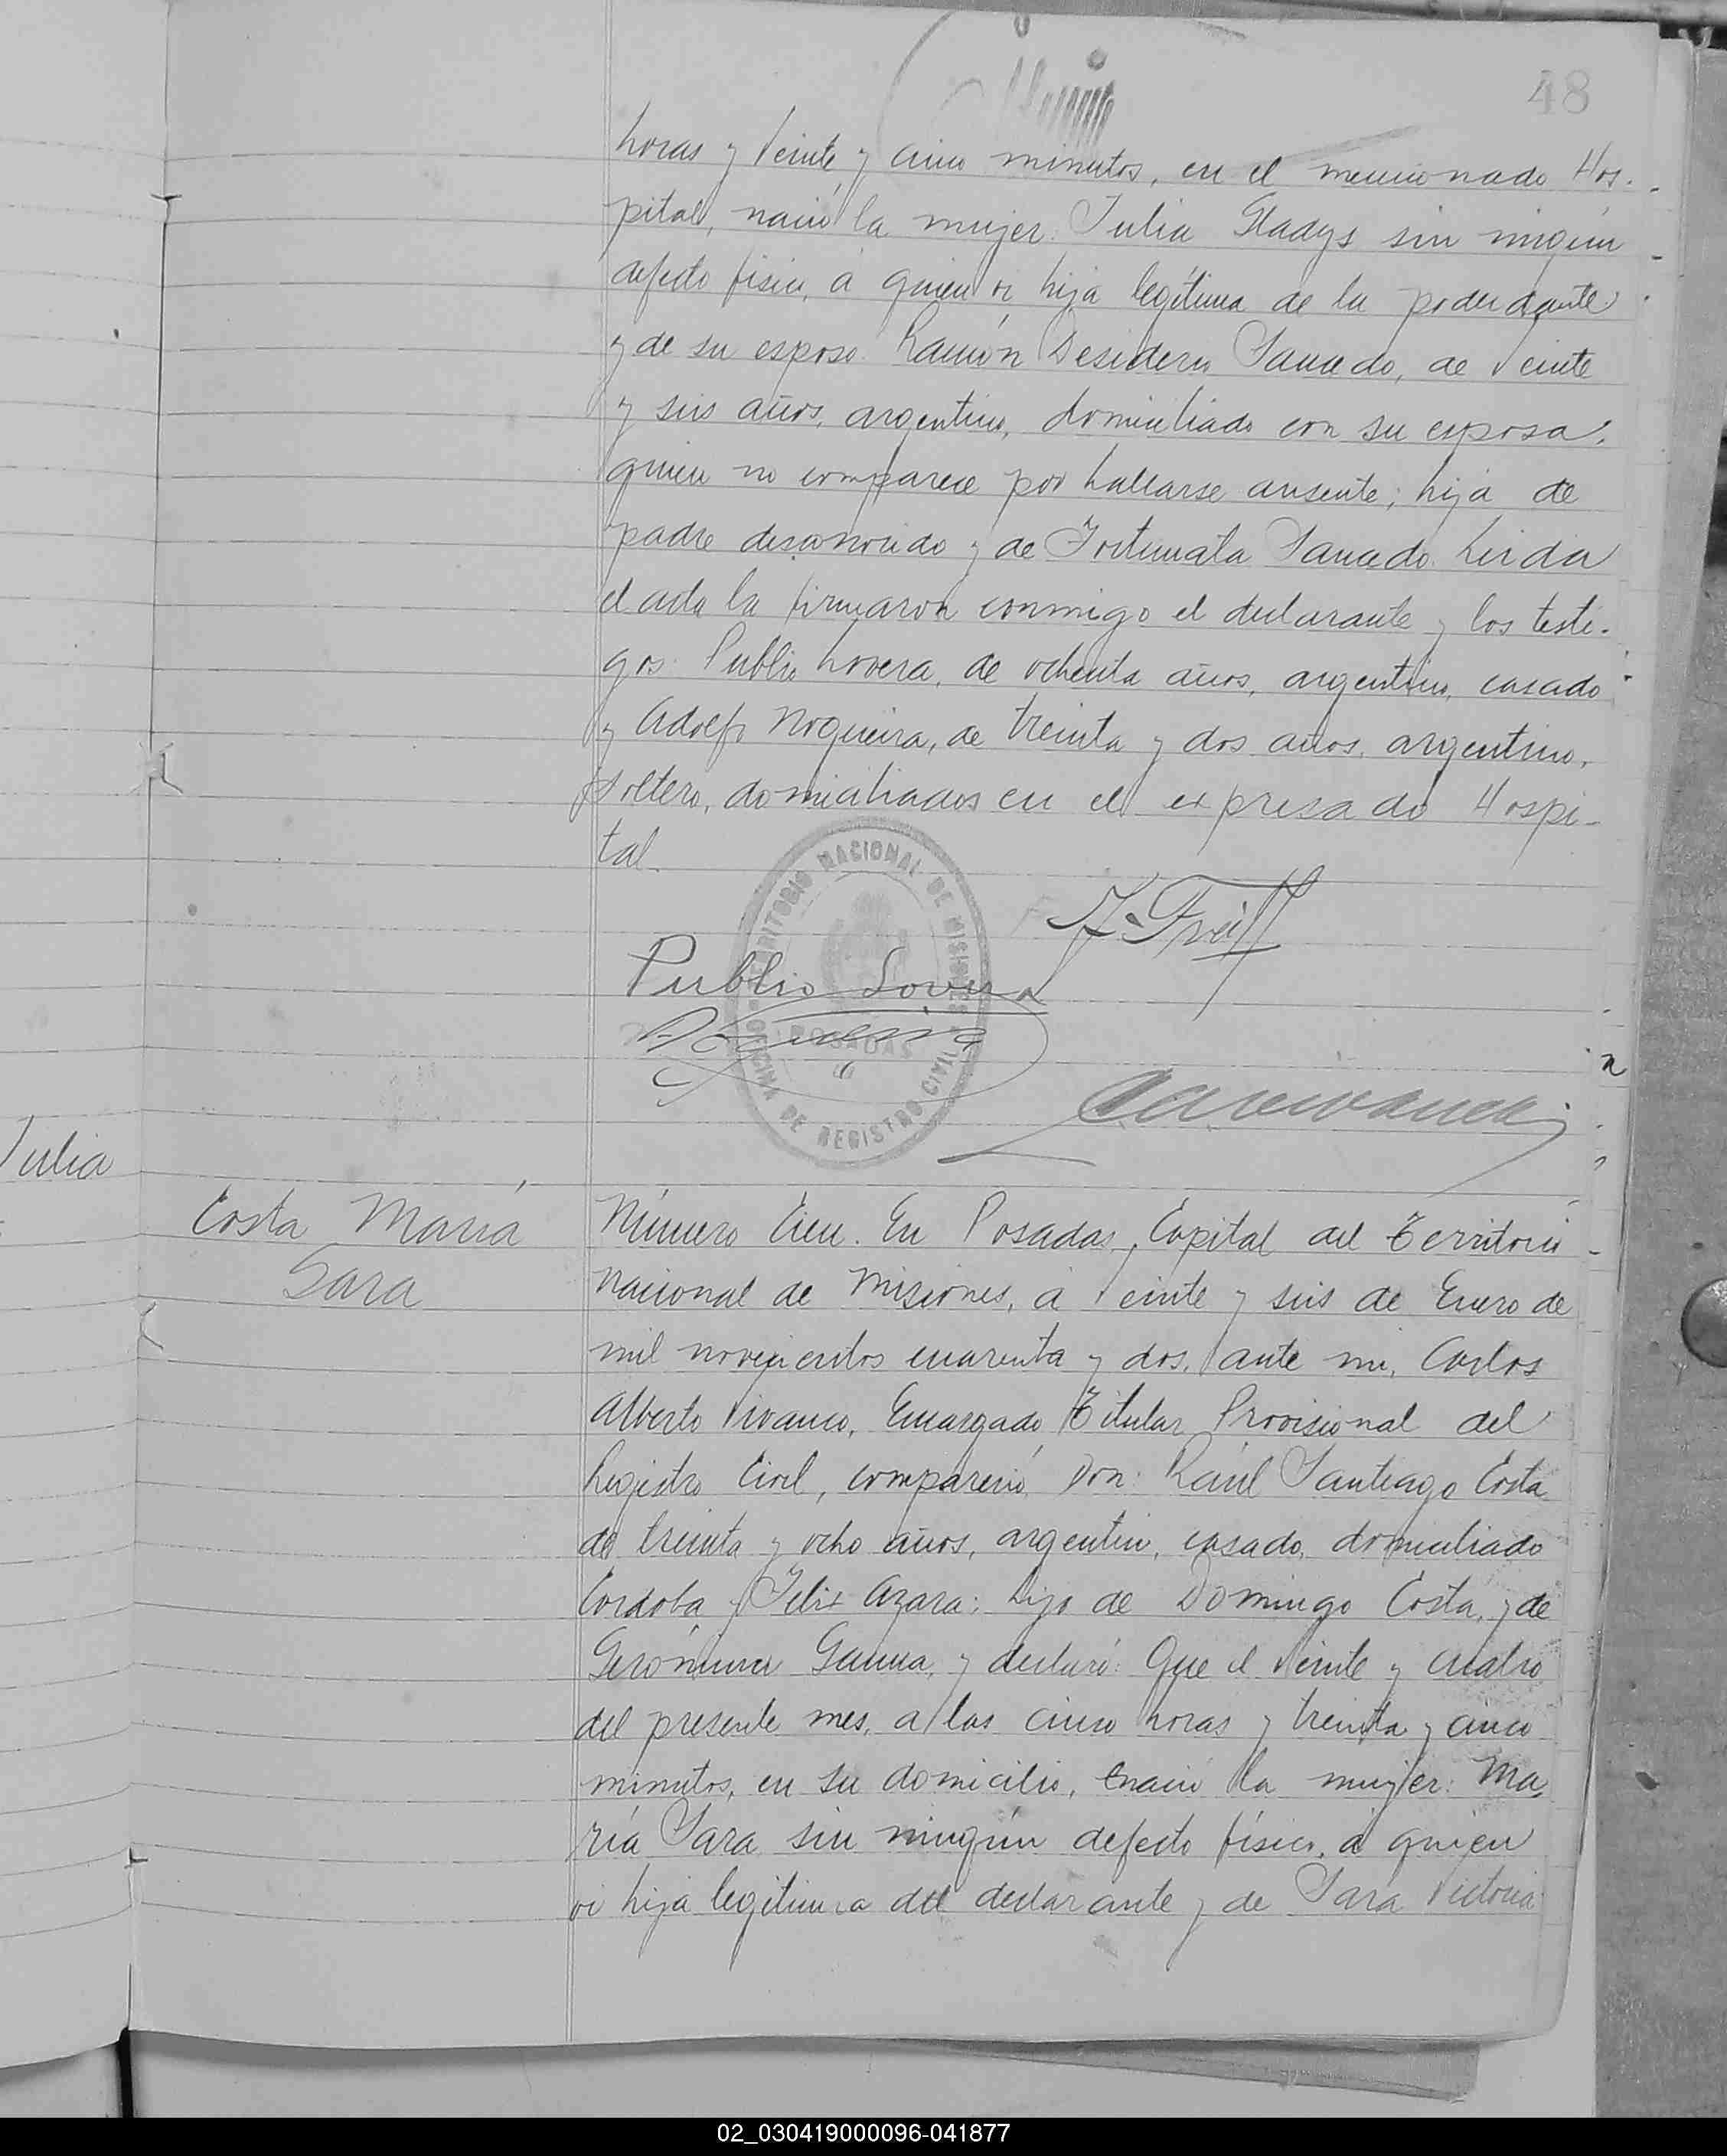 48
horas y Veinte y cinco minutos, en el mencionado Hos-
pital, nació la mujer: Julia Gladys sin ningún
defecto físico, a quien vi, hija legítima de la poderdante
y de su esposo: Ramón Desiderio Saucedo, de Veinte
y seis años, argentino, domiciliado con su esposa,
quien no comparece por hallarse ausente; hija de
padre desconocido y de Fortunata Saucedo. Leida
el acta la firmaron conmigo el declarante y los testi-
gos: Publio Lovera, de ochenta años, argentino, casado
y Adolfo Nogueira, de treinta y dos años, argentino,
soltero, domiciliados en el expresado Hospi-
tal.
TERRITORIO NACIONAL DE MISIONES
POSADAS
OFICINA DE REGISTRO CIVIL
Publio Lovera
Julia
Costa María
Sara
Número Cien. En Posadas, Capital del Territorio
Nacional de Misiones, a Veinte y seis de Enero de
mil novecientos cuarenta y dos, ante mi, Carlos
Alberto Vivanco, Encargado Titular Provisional del
Registro Civil, compareció Don: Raúl Santiago Costa
de treinta y ocho años, argentino, casado, domiciliado
Cordoba y Felix Azara; hijo de Domingo Costa, y de
Gerónima Gauna, y declaró: Que el Veinte y cuatro
del presente mes, a las cinco horas y treinta y cinco
minutos, en su domicilio, nació la mujer: Ma-
ría Sara sin ningún defecto físico, a quien
vi hija legitima del declarante y de Sara Victoria
02_030419000096-041877